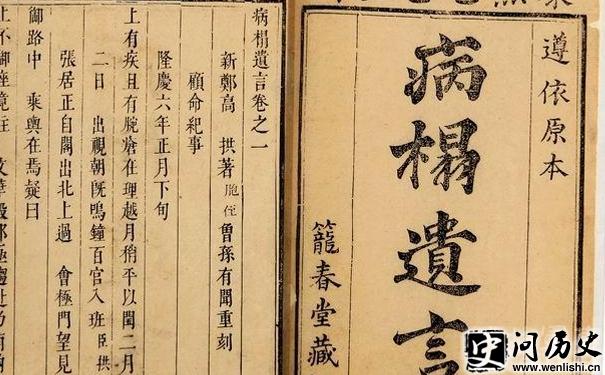 遵依原本
病榻遺言
籠春堂藏
病榻遺言卷之一
新鄭高 拱著 胞侄 魯孫有聞重刻
顧命紀事
隆慶六年正月下旬
上有疾且有腕瘡在理越月稍平以閏二月
二日 出視朝旣鳴鐘百官入班臣拱
張居正自閣出北上過 會極門望見
御路中 乘輿在焉疑曰
上不御座竟往 文華殿
问历史
www.wenlishi.cn